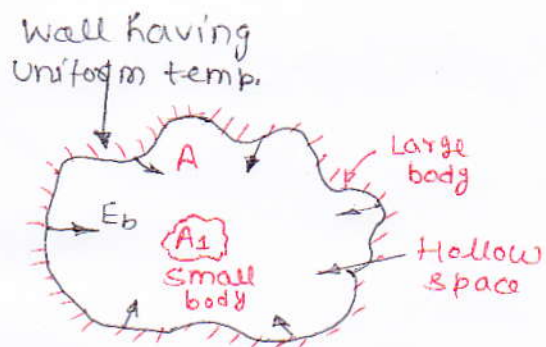 Wall having
Uniform temp.
A
Large
body
Eb
A1
Small
body
Hollow
space